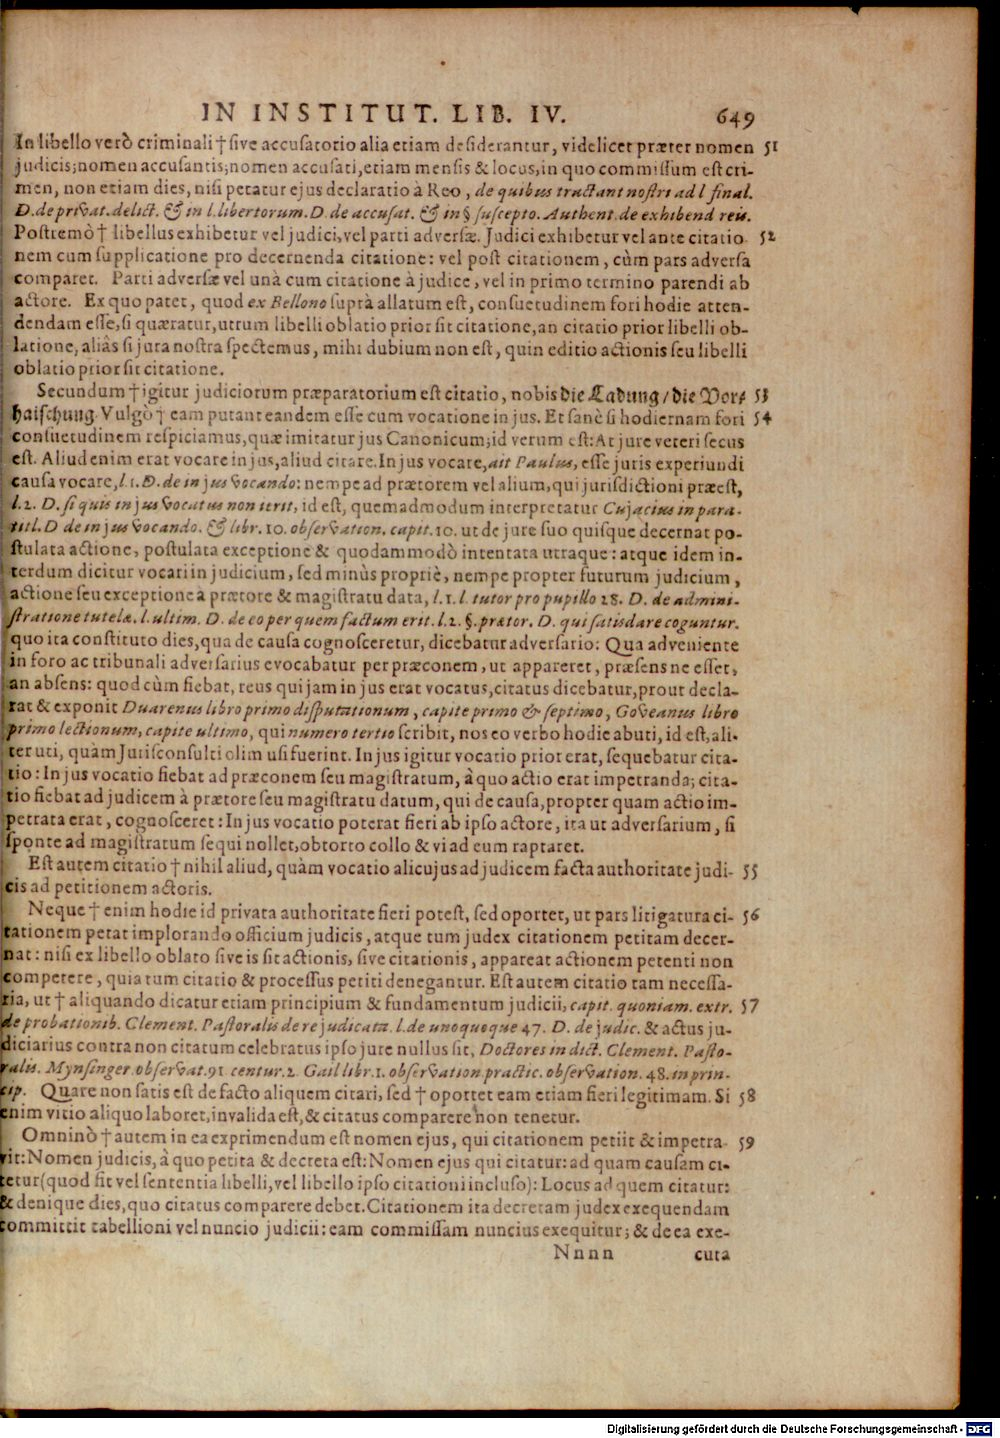 IN INSTITUT. LIB. IV. 649
In libello verò criminali † sive accusatorio alia etiam desiderantur, videlicet præter nomen 51
judicis; nomen accusantis; nomen accusati, etiam mensis & locus, in quo commissum est cri-
men, non etiam dies, nisi petatur ejus declaratio à Reo, de quibus tractant nostri ad l final.
D. de privat. delict. & in l. libertorum. D. de accusat. & in § suscepto. Authent. de exhibend reis.
Postremò † libellus exhibetur vel judici, vel parti adversæ. Judici exhibetur vel ante citatio- 52
nem cum supplicatione pro decernenda citatione: vel post citationem, cùm pars adversa
comparet. Parti adversæ vel unà cum citatione à judice, vel in primo termino parendi ab
actore. Ex quo patet, quod ex Bellono suprà allatum est, consuetudinem fori hodie atten-
dendam esse, si quæratur, utrum libelli oblatio prior sit citatione, an citatio prior libelli ob-
latione, aliàs si jura nostra spectemus, mihi dubium non est, quin editio actionis seu libelli
oblatio prior sit citatione.
Secundum † igitur judiciorum præparatorium est citatio, nobis die Ladung / die Vor- 53
haischung. Vulgò † eam putant eandem esse cum vocatione in jus. Et sanè si hodiernam fori 54
consuetudinem respiciamus, quæ imitatur jus Canonicum; id verum est: At jure veteri secus
est. Aliud enim erat vocare in jus, aliud citare. In jus vocare, ait Paulus, esse juris experiundi
causa vocare, l. 1. D. de in jus vocando: nempe ad prætorem vel alium, qui jurisdictioni præest,
l. 2. D. si quis in jus vocatus non ierit, id est, quemadmodum interpretatur Cujacius in para-
titl. D de in jus vocando. & libr. 10. observation. capit. 10. ut de jure suo quisque decernat po-
stulata actione, postulata exceptione & quodammodò intentata utraque: atque idem in-
terdum dicitur vocari in judicium, sed minùs propriè, nempe propter futurum judicium,
actione seu exceptione à prætore & magistratu data, l. 1. l. tutor pro pupillo 28. D. de admini-
stratione tutelæ. l. ultim. D. de eo per quem factum erit. l. 2. §. prætor. D. qui satisdare coguntur.
quo ita constituto dies, qua de causa cognosceretur, dicebatur adversario: Qua adveniente
in foro ac tribunali adversarius evocabatur per præconem, ut appareret, præsens ne esset,
an absens: quod cùm fiebat, reus qui jam in jus erat vocatus, citatus dicebatur, prout decla-
rat & exponit Duarenus libro primo disputationum, capite primo & septimo, Goveanus libro
primo lectionum, capite ultimo, qui numero tertio scribit, nos eo verbo hodie abuti, id est, ali-
ter uti, quàm Jurisconsulti olim usi fuerint. In jus igitur vocatio prior erat, sequebatur cita-
tio: In jus vocatio fiebat ad præconem seu magistratum, à quo actio erat impetranda; cita-
tio fiebat ad judicem à prætore seu magistratu datum, qui de causa, propter quam actio im-
petrata erat, cognosceret: In jus vocatio poterat fieri ab ipso actore, ita ut adversarium, si
sponte ad magistratum sequi nollet, obtorto collo & vi ad eum raptaret.
Est autem citatio † nihil aliud, quàm vocatio alicujus ad judicem facta authoritate judi- 55
cis ad petitionem actoris.
Neque † enim hodie id privata authoritate fieri potest, sed oportet, ut pars litigatura ci- 56
tationem petat implorando officium judicis, atque tum judex citationem petitam decer-
nat: nisi ex libello oblato sive is sit actionis, sive citationis, appareat actionem petenti non
competere, quia tum citatio & processus petiti denegantur. Est autem citatio tam necessa-
ria, ut † aliquando dicatur etiam principium & fundamentum judicii, capit. quoniam. extr. 57
de probationib. Clement. Pastoralis de re judicata. l. de unoquoque 47. D. de judic. & actus ju-
diciarius contra non citatum celebratus ipso jure nullus sit, Doctores in dict. Clement. Pasto-
ralis. Mynsinger. observat. 91 centur. 2. Gail libr. 1. observation practic. observation. 48. in prin-
cip. Quare non satis est de facto aliquem citari, sed † oportet eam etiam fieri legitimam. Si 58
enim vitio aliquo laboret, invalida est, & citatus comparere non tenetur.
Omninò † autem in ea exprimendum est nomen ejus, qui citationem petiit & impetra- 59
vit: Nomen judicis, à quo petita & decreta est: Nomen ejus qui citatur: ad quam causam ci-
tetur (quod fit vel sententia libelli, vel libello ipso citationi incluso): Locus ad quem citatur:
& denique dies, quo citatus comparere debet. Citationem ita decretam judex exequendam
committit tabellioni vel nuncio judicii: eam commissam nuncius exequitur; & de ea exe-
Nnnn cuta
Digitalisierung gefördert durch die Deutsche Forschungsgemeinschaft - DFG